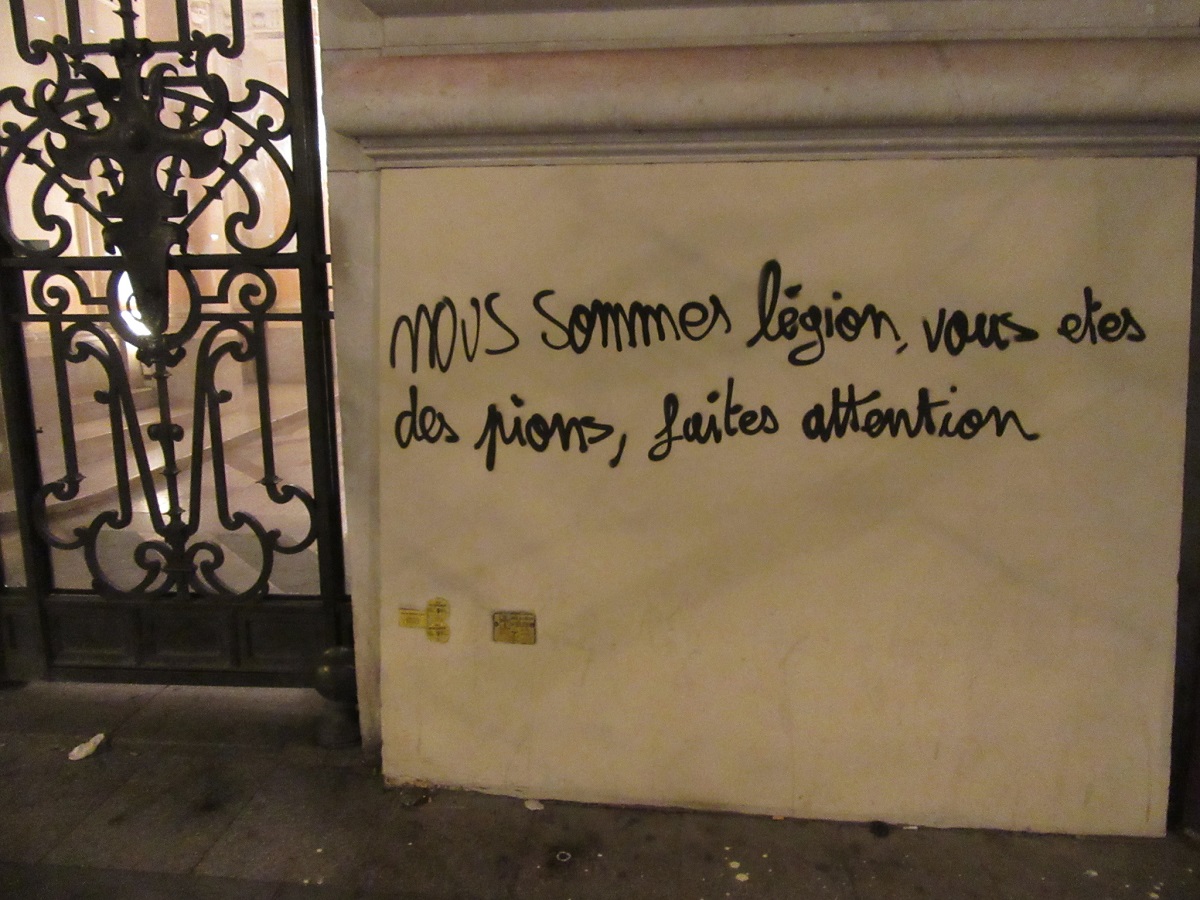 nous sommes légion, vous etes
des pions, faites attention